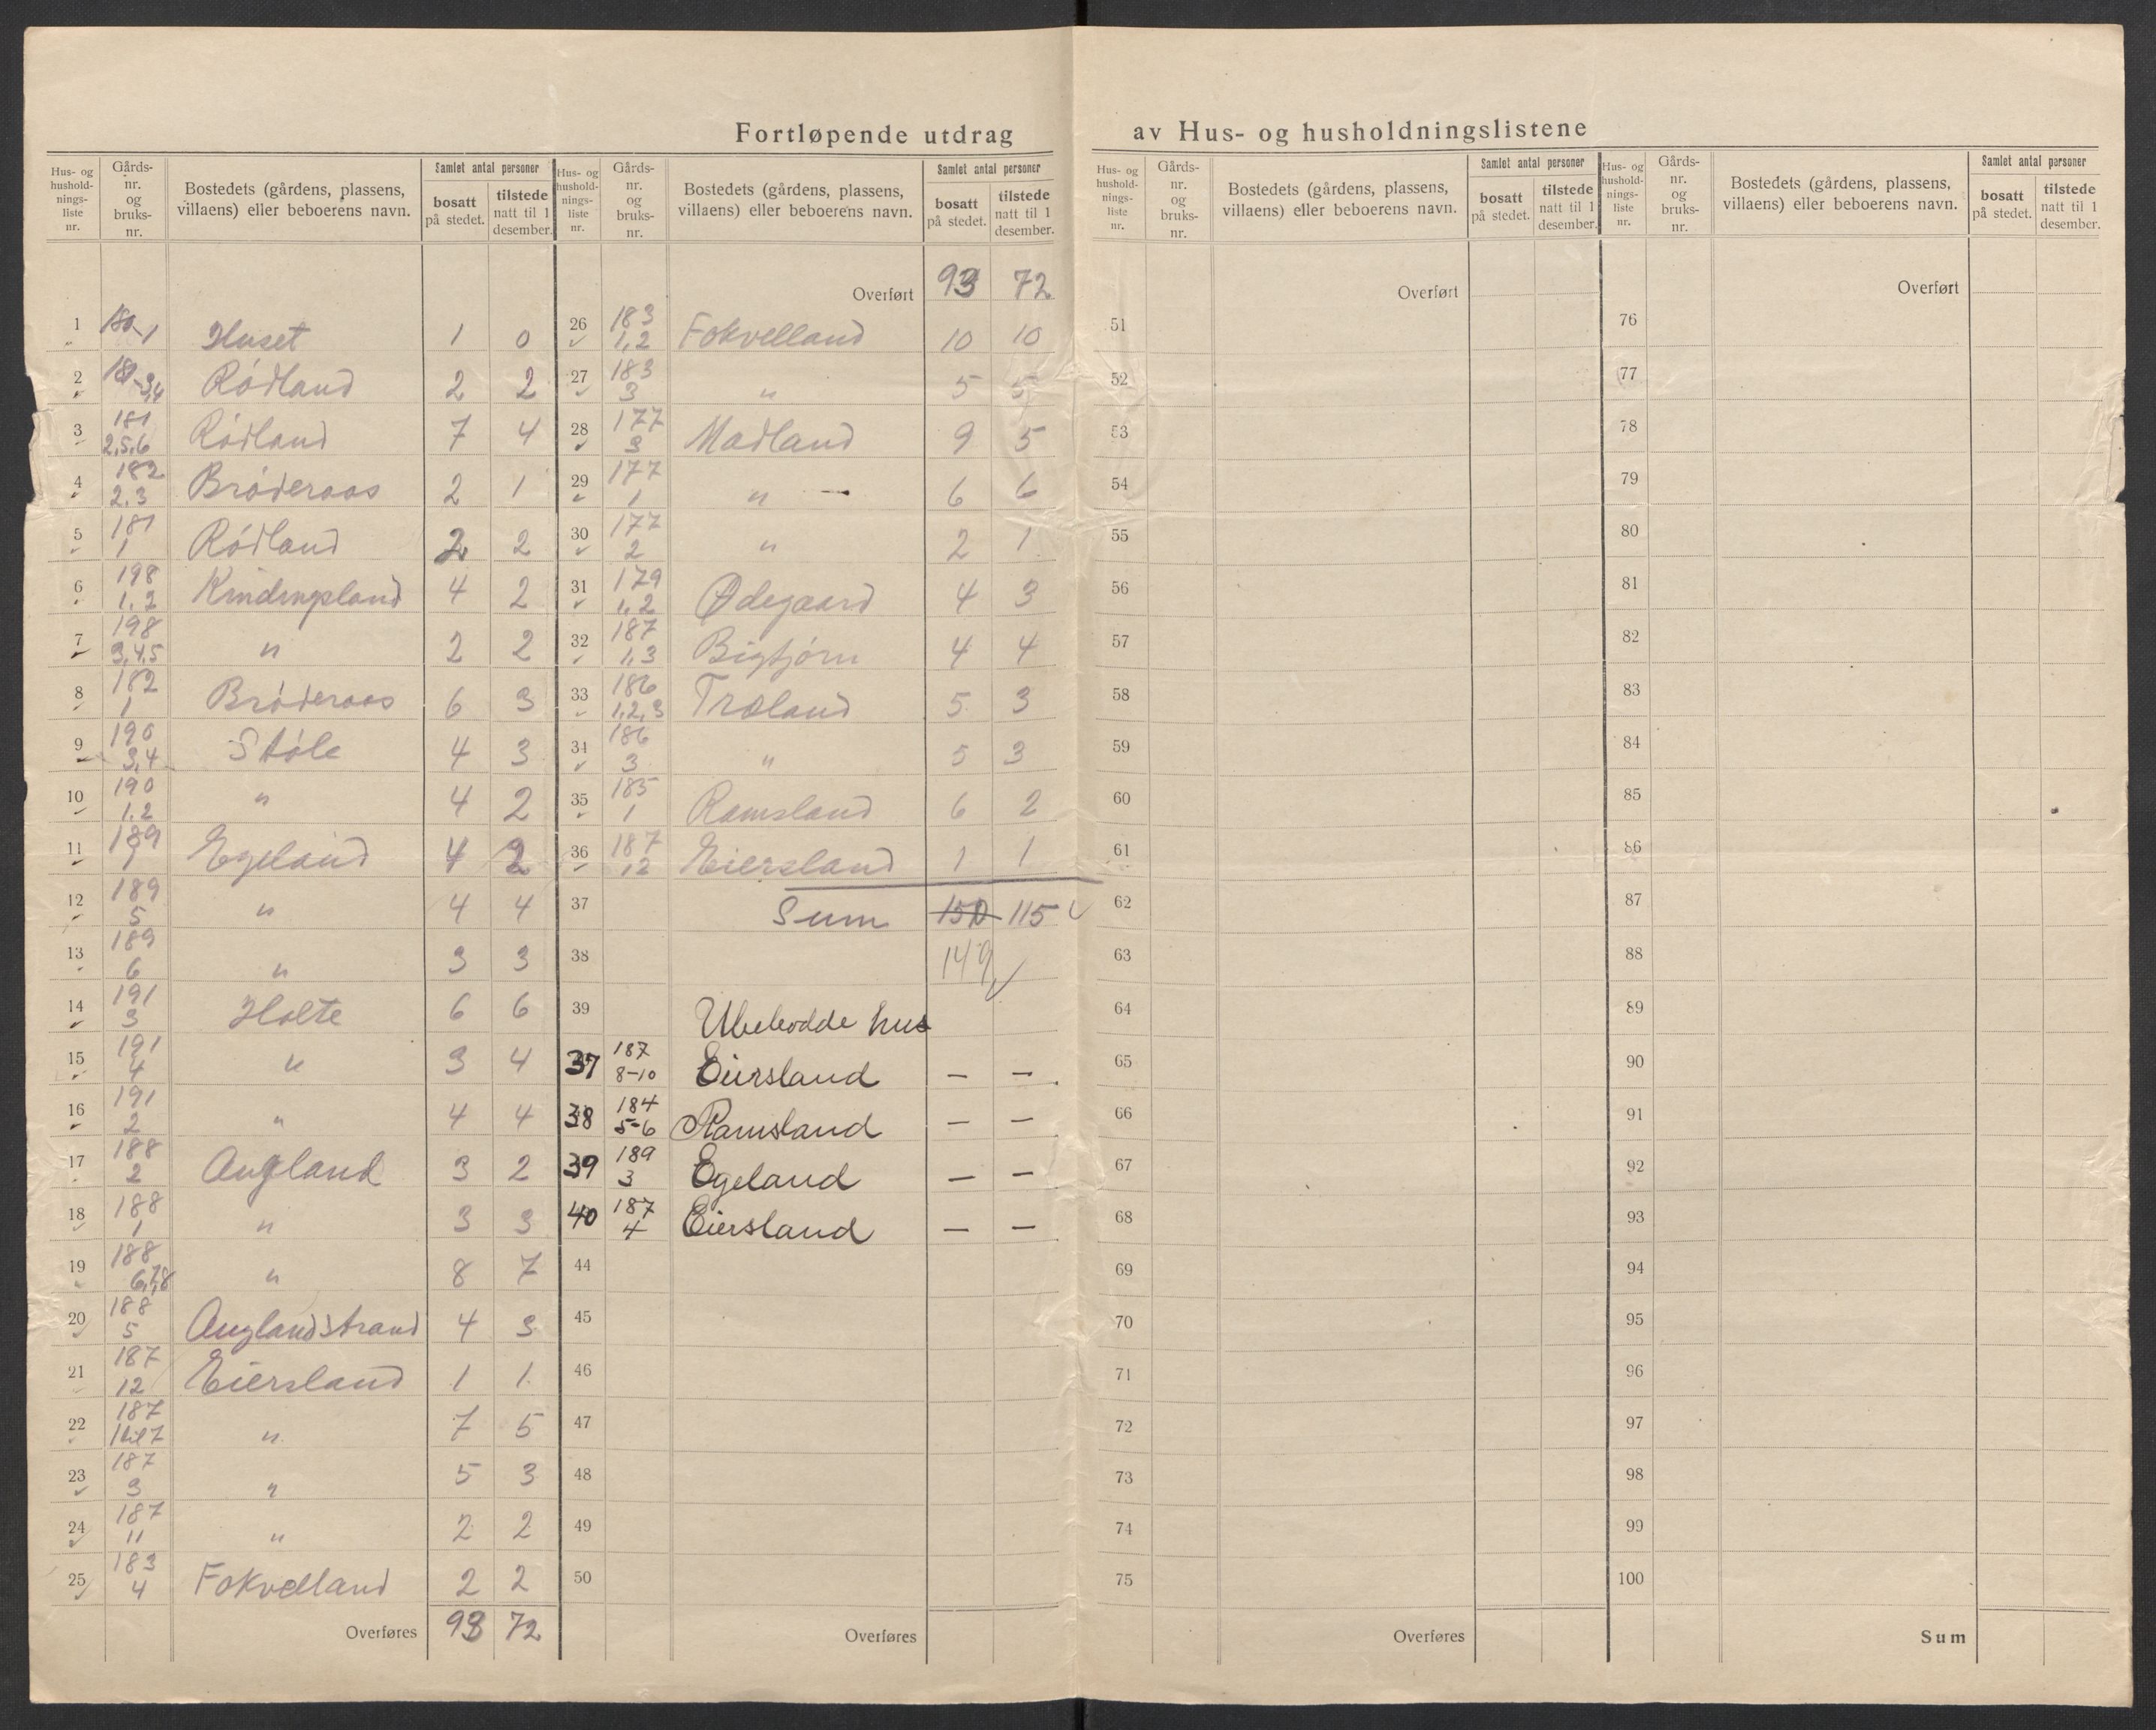 Fortløpende utdrag av Hus- og husholdningslistene
Hus- og hushold- nings- liste nr. | Gårds- nr. og bruks- nr. | Bostedets (gårdens, plassens, villaens) eller beboerens navn. | Samlet antal personer | bosatt på stedet. | tilstede natt til 1 desember.
1 180-1 Huset 1 0
2 181-3,4 Rødland 2 2
3 181 2,5,6 Rødland 7 4
4 182 2.3 Brøderaas 2 1
5 181 1 Rødland 2 2
6 198 1,2 Kindingsland 4 2
7 198 3,4,5 " 2 2
8 182 1 Brøderaas 6 3
9 190 3,4 Støle 4 3
10 190 1.2 " 4 2
11 189 1 Egeland 4 2
12 189 5 " 4 4
13 189 6 " 3 3
14 191 3 Holte 6 6
15 191 4 " 3 4
16 191 2 " 4 4
17 188 2 Augland 3 2
18 188 1 " 3 3
19 188 6,7,8 " 8 7
20 188 5 Auglandstrand 4 3
21 187 12 Eiersland 1 1
22 187 1 til 7 " 7 5
23 187 3 " 5 3
24 187 11 " 2 2
25 183 4 Fokvelland 2 2
Overføres 93 72
Hus- og hushold- nings- liste nr. | Gårds- nr. og bruks- nr. | Bostedets (gårdens, plassens, villaens) eller beboerens navn. | Samlet antal personer | bosatt på stedet. | tilstede natt til 1 desember.
Overført 93 72
26 183 1,2 Fokvelland 10 10
27 183 3 " 5 5
28 177 3 Madland 9 5
29 177 1 " 6 6
30 177 2 " 2 1
31 179 1,2 Ødegaard 4 3
32 187 1,3 Bigtjørn 4 4
33 186 1,2,3 Træland 5 3
34 186 3 " 5 3
35 185 1 Ramsland 6 2
36 187 12 Eiersland 1 1
37 Sum 150 115
38 149
39 Ubebodde hus
37 187 8-10 Eiersland — —
38 184 5-6 Ramsland — —
39 189 3 Egeland — —
40 187 4 Eiersland — —
44
45
46
47
48
49
50
Overføres
Hus- og hushold- nings- liste nr. | Gårds- nr. og bruks- nr. | Bostedets (gårdens, plassens, villaens) eller beboerens navn. | Samlet antal personer | bosatt på stedet. | tilstede natt til 1 desember.
Overført
51
52
53
54
55
56
57
58
59
60
61
62
63
64
65
66
67
68
69
70
71
72
73
74
75
Overføres
Hus- og hushold- nings- liste nr. | Gårds- nr. og bruks- nr. | Bostedets (gårdens, plassens, villaens) eller beboerens navn. | Samlet antal personer | bosatt på stedet. | tilstede natt til 1 desember.
Overført
76
77
78
79
80
81
82
83
84
85
86
87
88
89
90
91
92
93
94
95
96
97
98
99
100
Sum